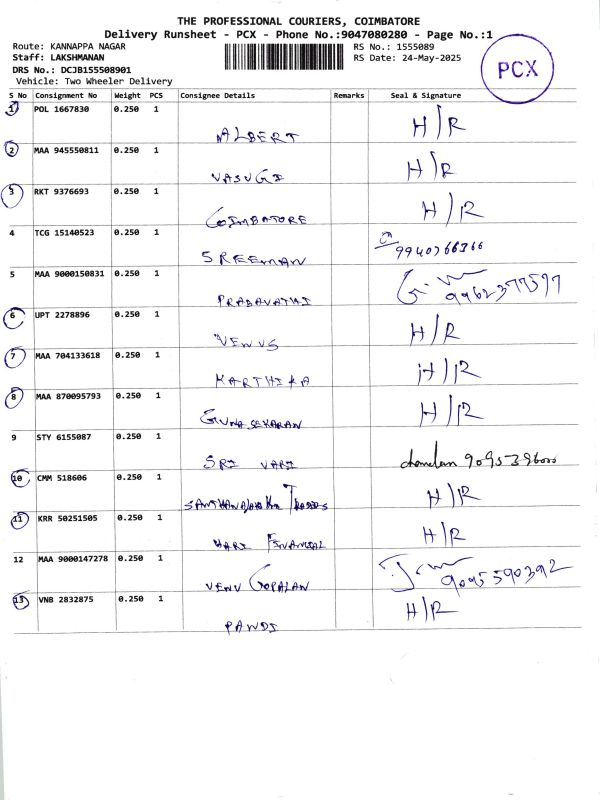 THE PROFESSIONAL COURIERS, COIMBATORE
Delivery Runsheet - PCX - Phone No.:9047080280 - Page No.:1
Route: KANNAPPA NAGAR RS No.: 1555089
Staff: LAKSHMANAN RS Date: 24-May-2025
DRS No.: DCJB155508901
Vehicle: Two Wheeler Delivery
PCX
S No Consignment No Weight PCS Consignee Details Remarks Seal & Signature
1 POL 1667830 0.250 1 ALBERT H/R
2 MAA 945550811 0.250 1 VASUGI H/R
3 RKT 9376693 0.250 1 COIMBATORE H/R
4 TCG 15140523 0.250 1 SREEMAN 9940766366
5 MAA 9000150831 0.250 1 PRABAVATHI 9962377597
6 UPT 2278896 0.250 1 VENUS H/R
7 MAA 704133618 0.250 1 KARTHIKA H/R
8 MAA 870095793 0.250 1 GUNASEKARAN H/R
9 STY 6155087 0.250 1 SRI VARI
10 CMM 518606 0.250 1 H/R
11 KRR 50251505 0.250 1 HARI FINANCIAL H/R
12 MAA 9000147278 0.250 1 VENU GOPALAN 9095590392
13 VNB 2832875 0.250 1 PANDI H/R